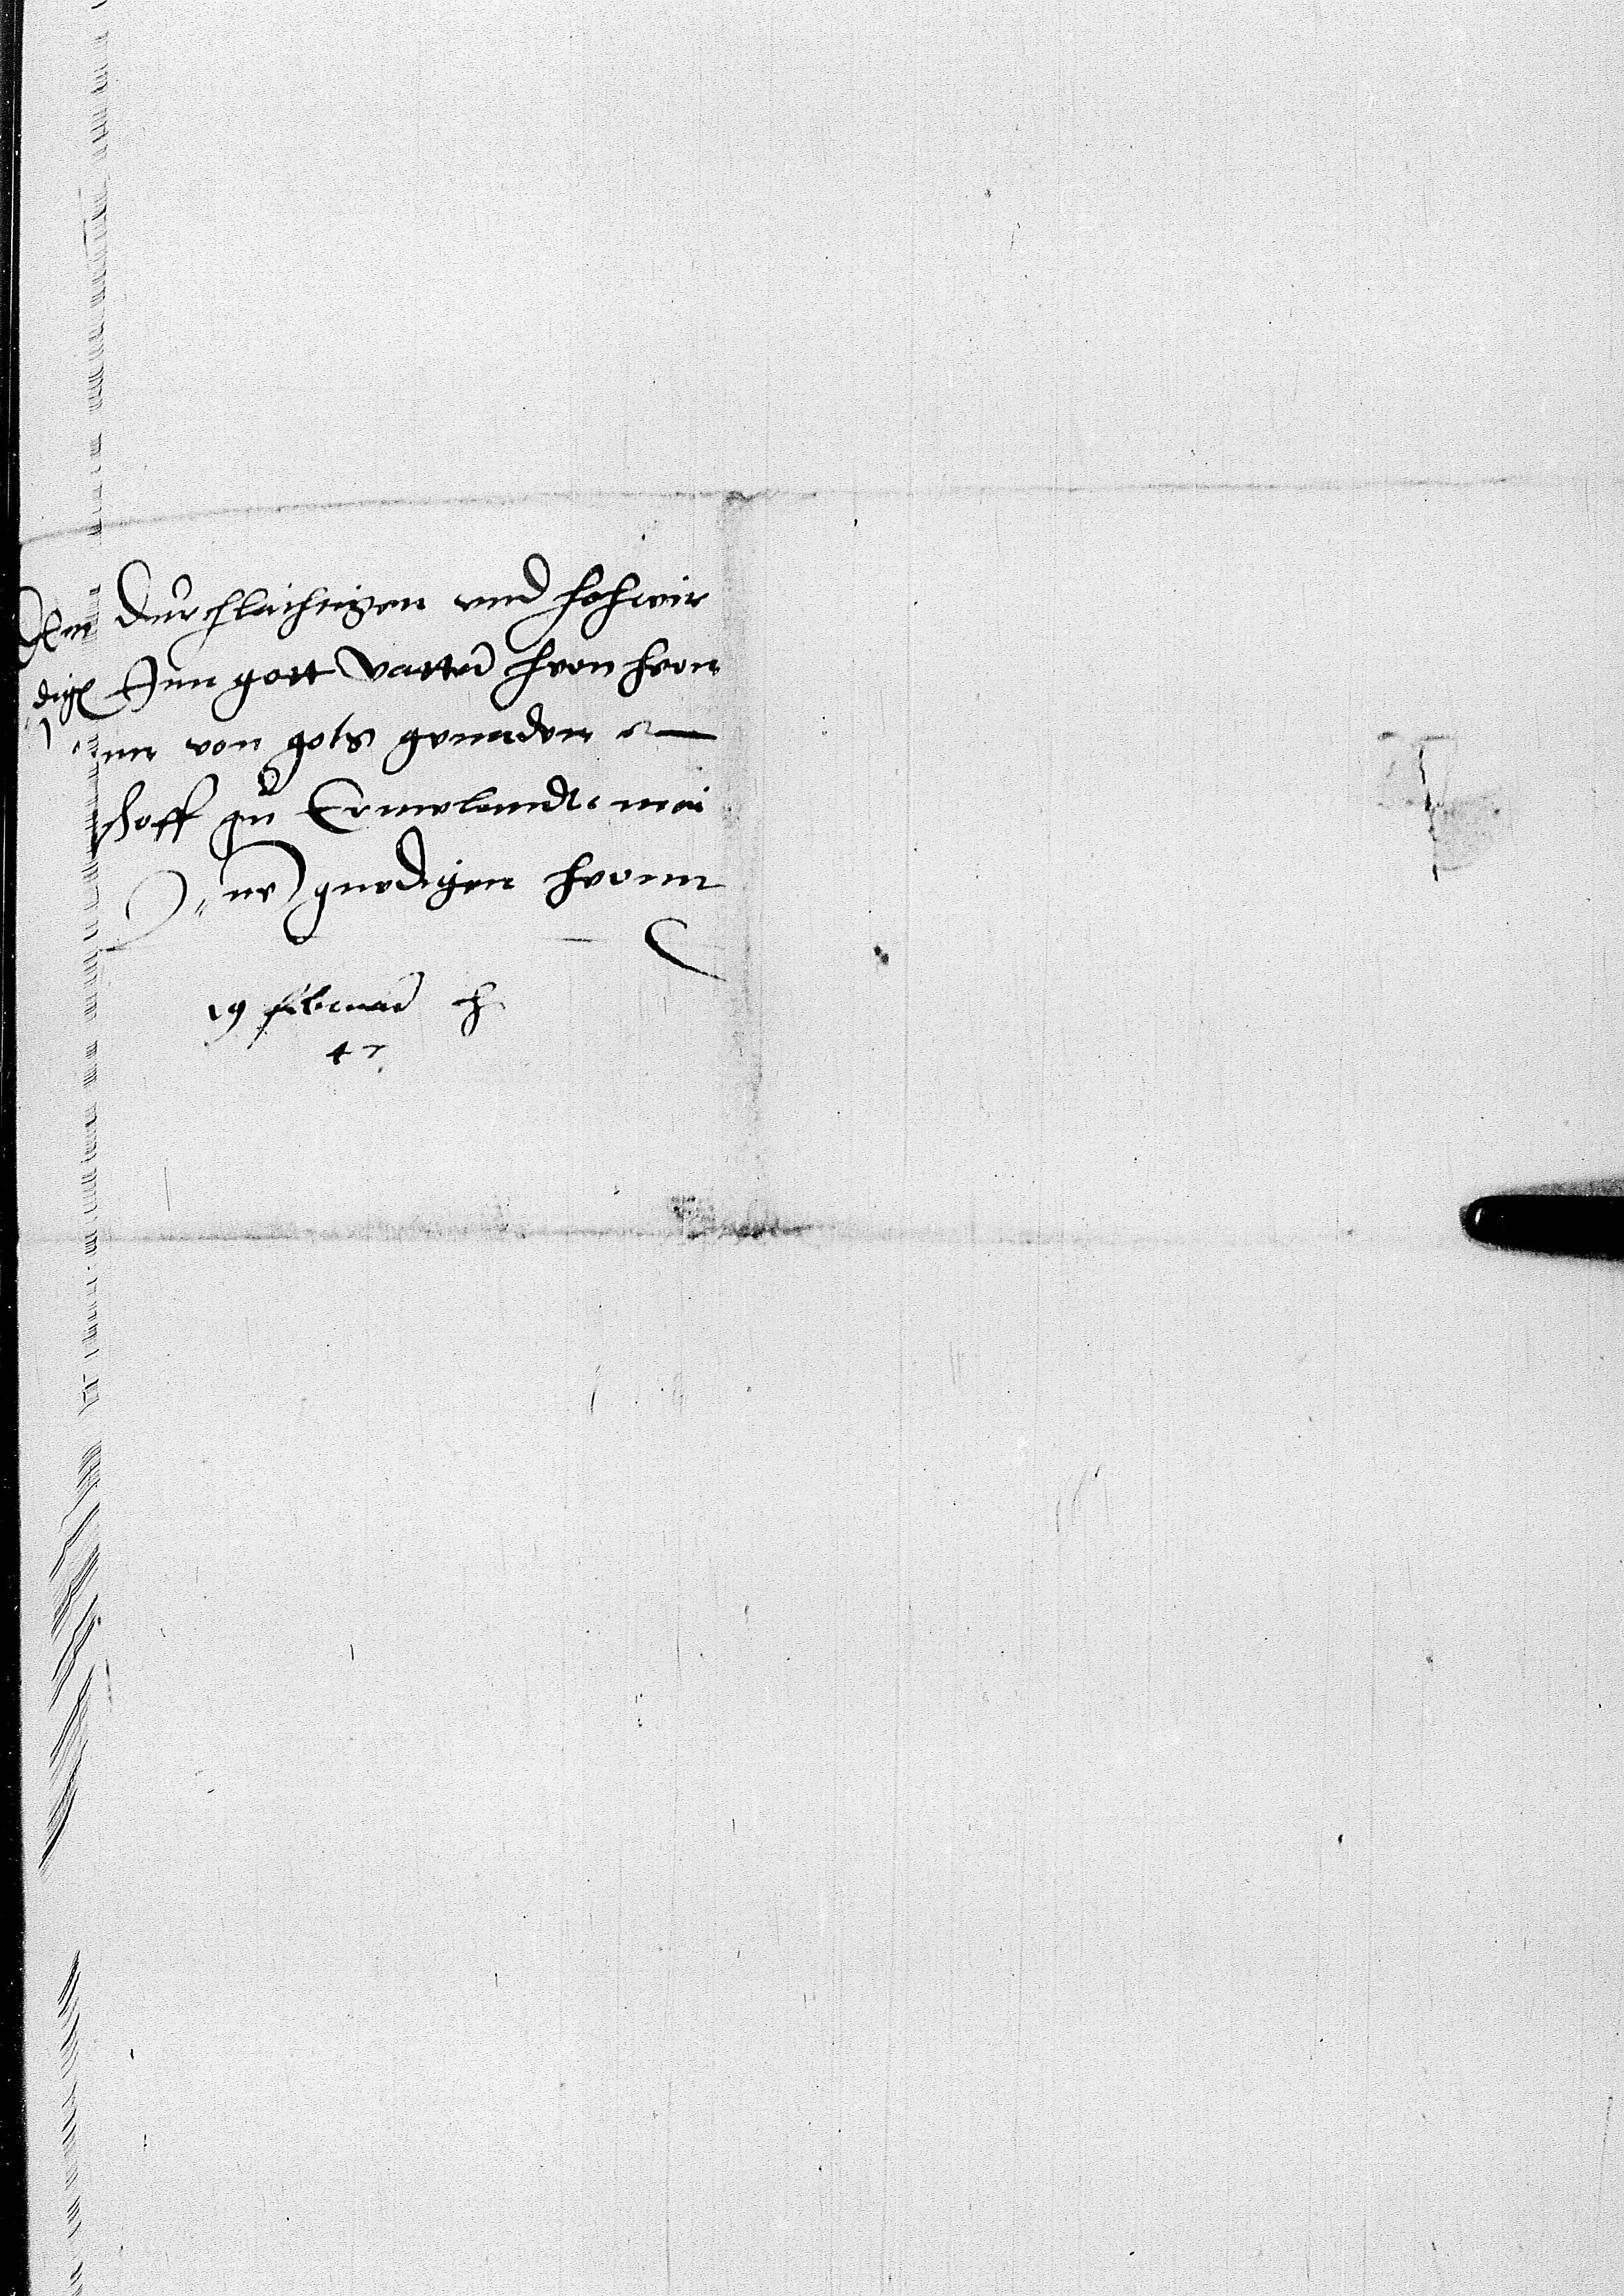 Dem durchlaichtigen und hochwir
digen Inn gott vatter hern hern
von gots genaden
schoff zu Ermelandt mei
ne gnedigen hernn
19 februar
47